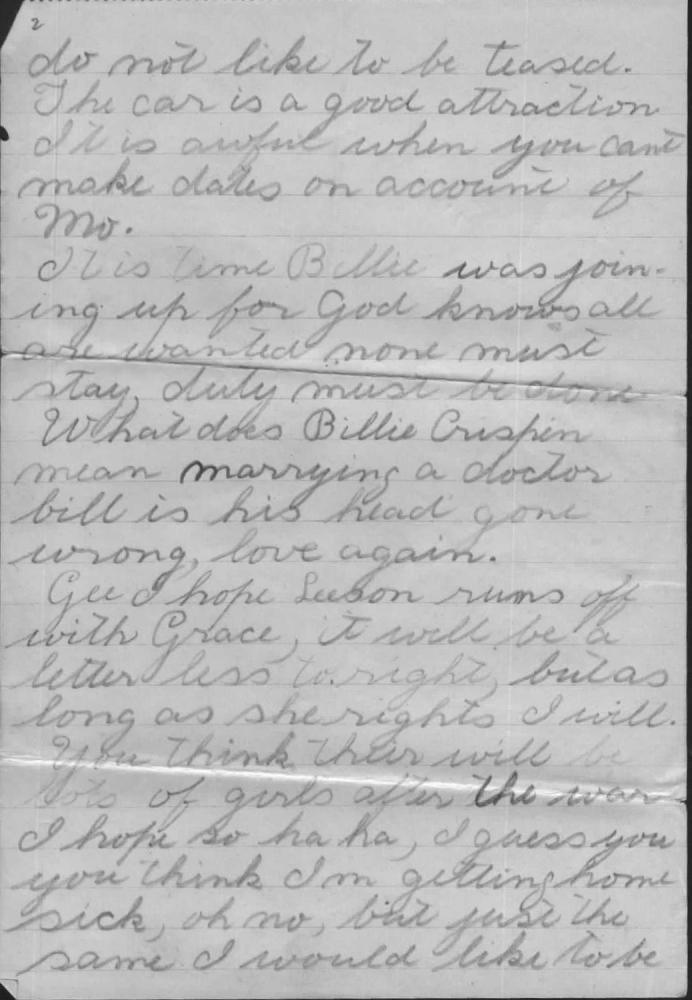 2
do not like to be teased.
The car is a good attraction
It is awful when you cant
make dates on account of
Mo.
It is time Billie was join-
ing up for God knows all
are wanted none must
stay, duty must be done
What does Billie Crispin
mean marrying a doctor
bill is his head gone
wrong, love again.
Gee I hope Leeson runs off
with Grace, it will be a
letter less to right, but as
long as she rights I will.
You think their will be
lots of girls after the war
I hope so ha ha, I guess you
you think I'm getting home
sick, oh no, but just the
same I would like to be